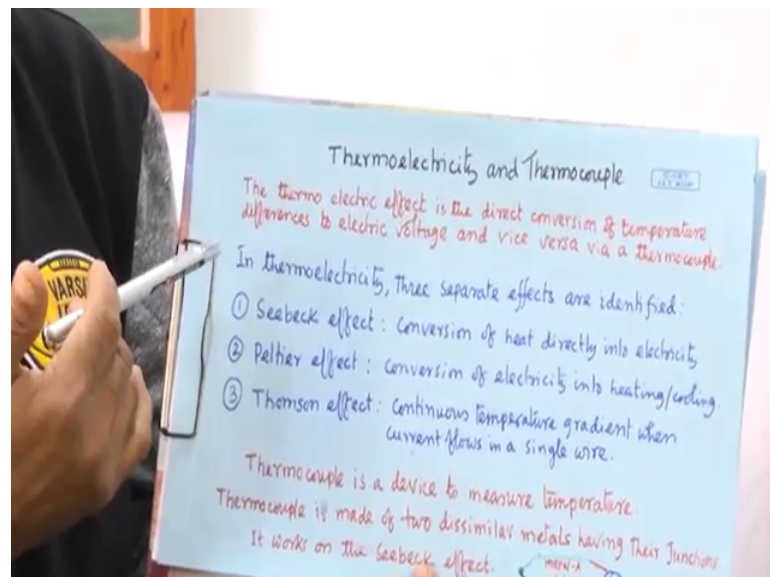 Thermoelectricity and Thermocouple
The thermo electric effect is the direct conversion of temperature
differences to electric voltage and vice versa via a thermocouple.
In thermoelectricity, Three separate effects are identified:
① Seebeck effect: conversion of heat directly into electricity
② Peltier effect: conversion of electricity into heating/cooling.
③ Thomson effect: Continuous temperature gradient when
current flows in a single wire.
Thermocouple is a device to measure temperature.
Thermocouple is made of two dissimilar metals having their Junctions.
It works on the Seebeck effect.
metal-A
VARSI